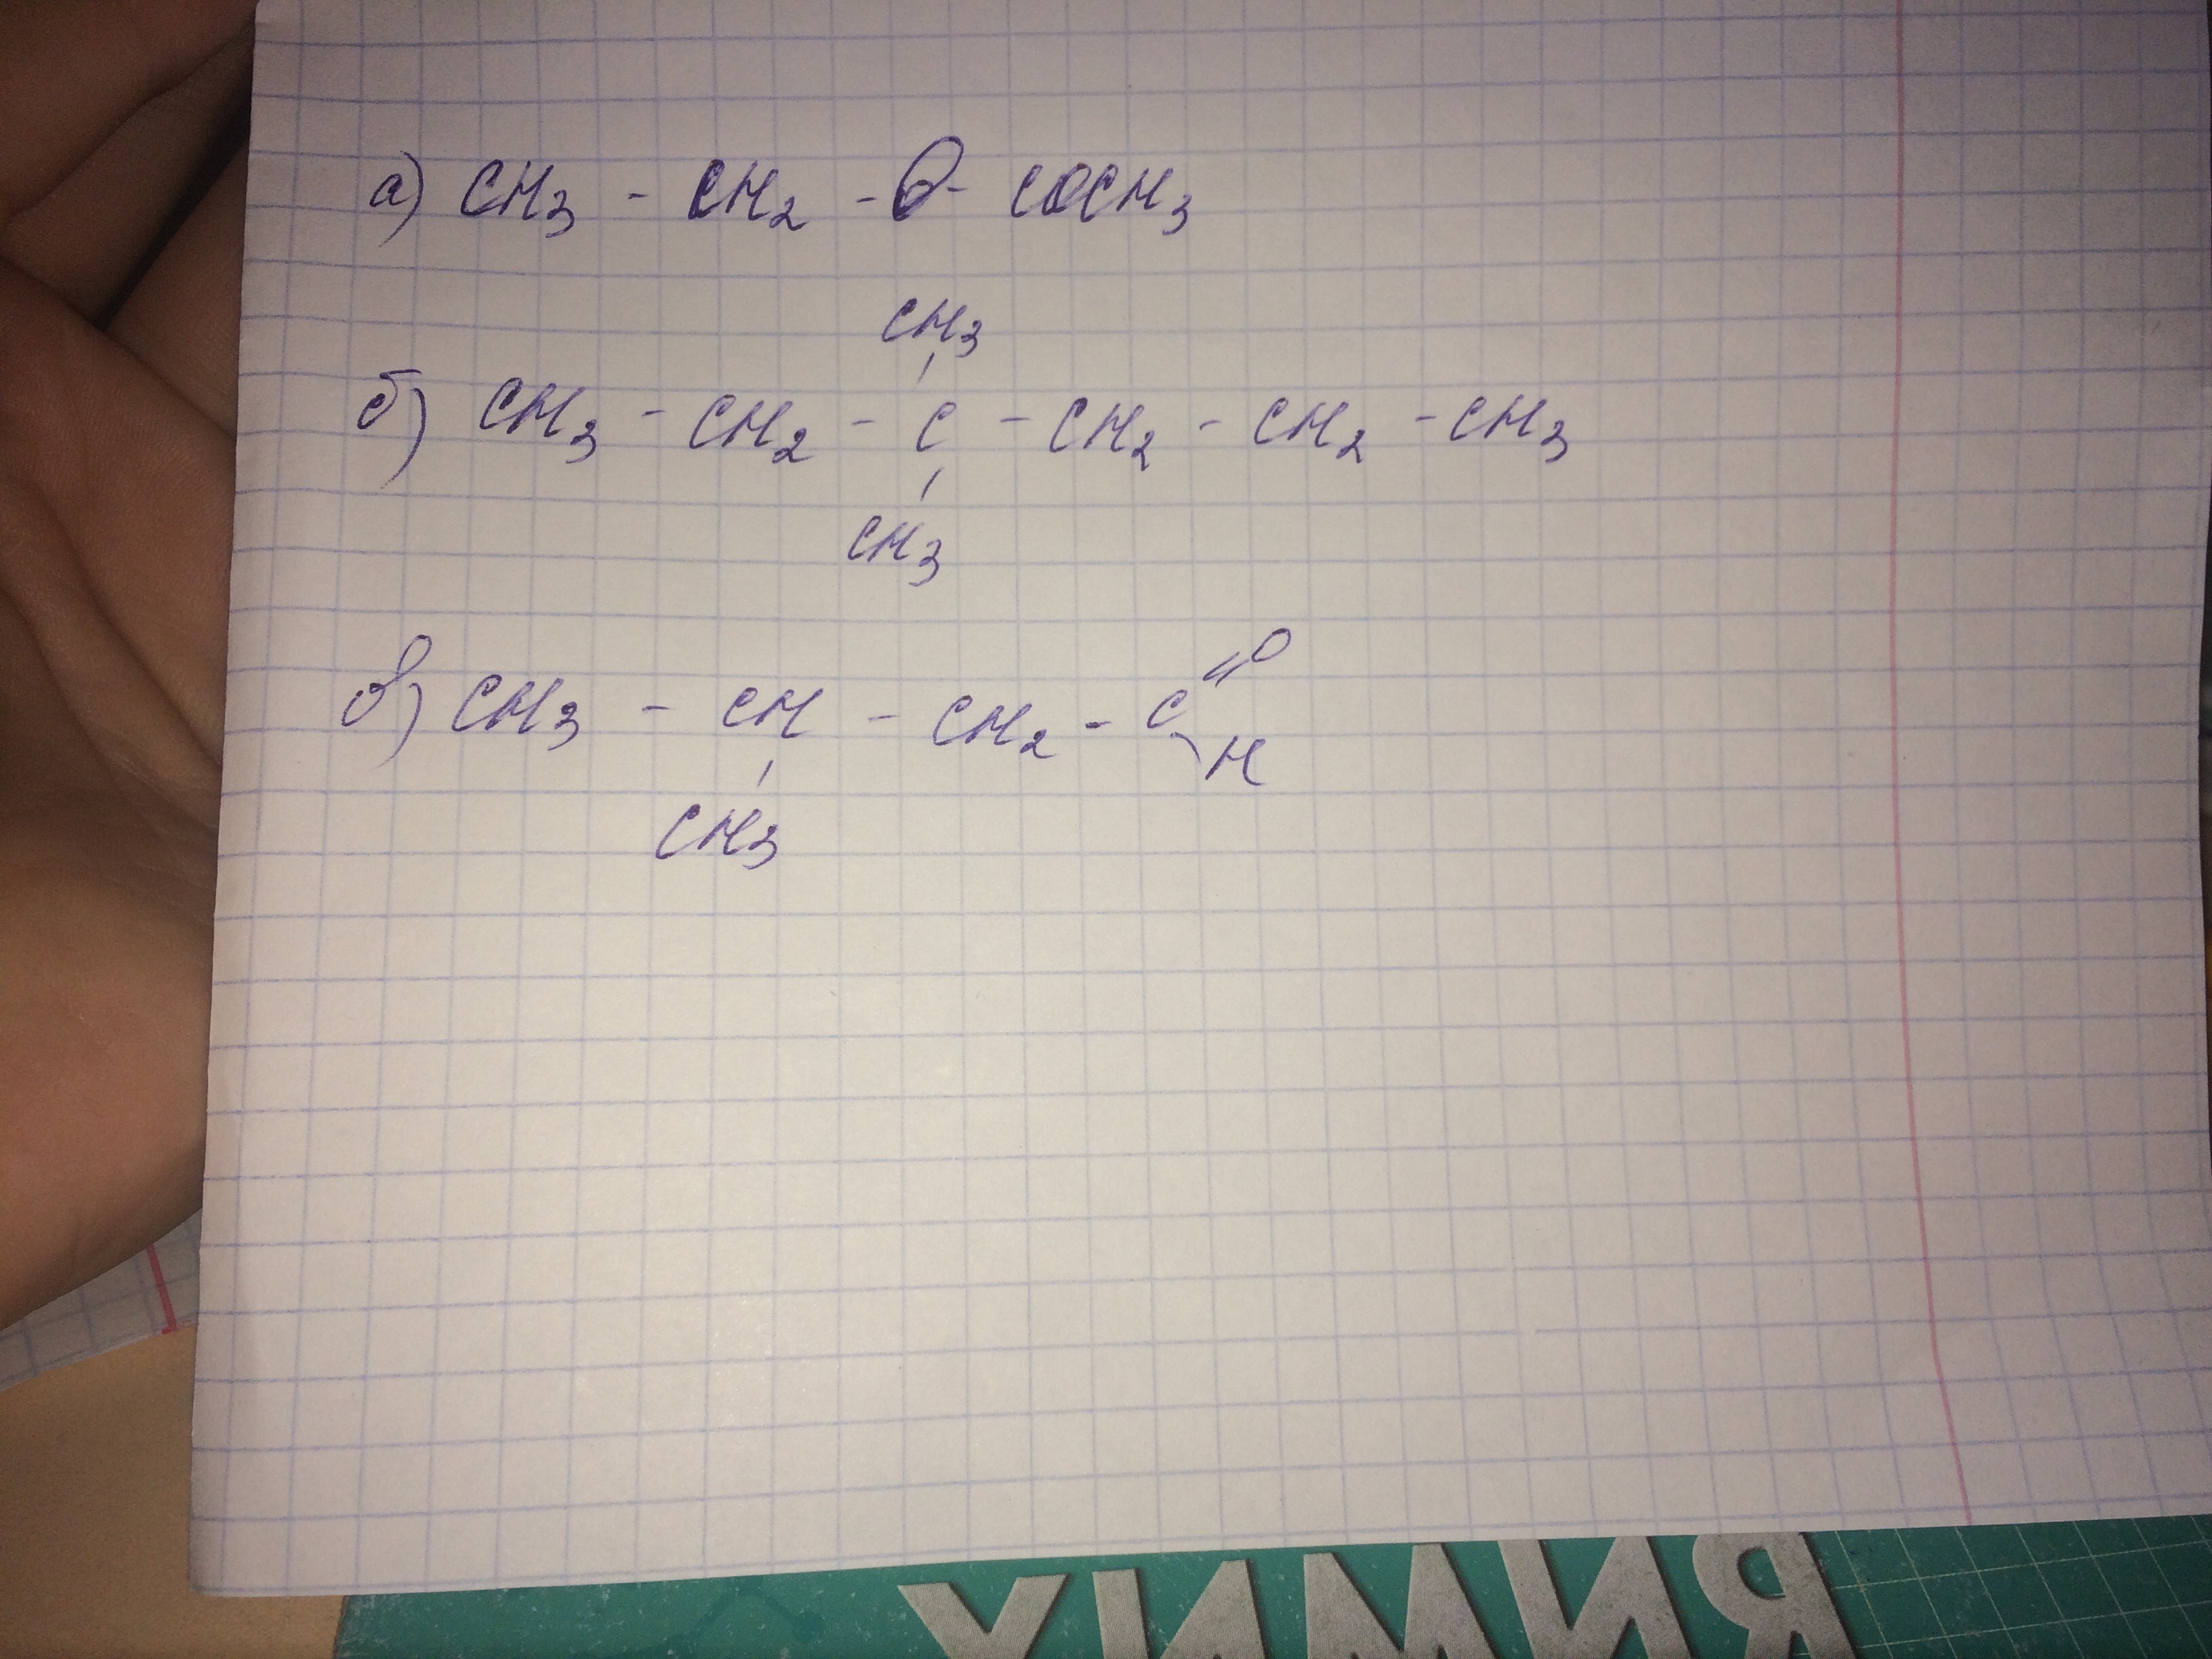 а) CH3 - CH2 - O - COCH3
CH3
б) CH3 - CH2 - C - CH2 - CH2 - CH3
CH3
в) CH3 - CH - CH2 - C =O
H
CH3
ХИМИЯ